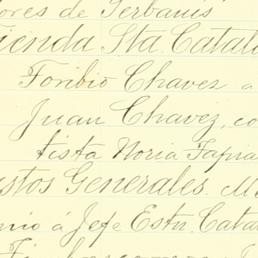 ores de Terbanis
ienda Sta. Catal
Toribio Chavez a
Juan Chavez, co
tista Noria Tapia
stos Generales. M
nio á Jefe Estn. Cata